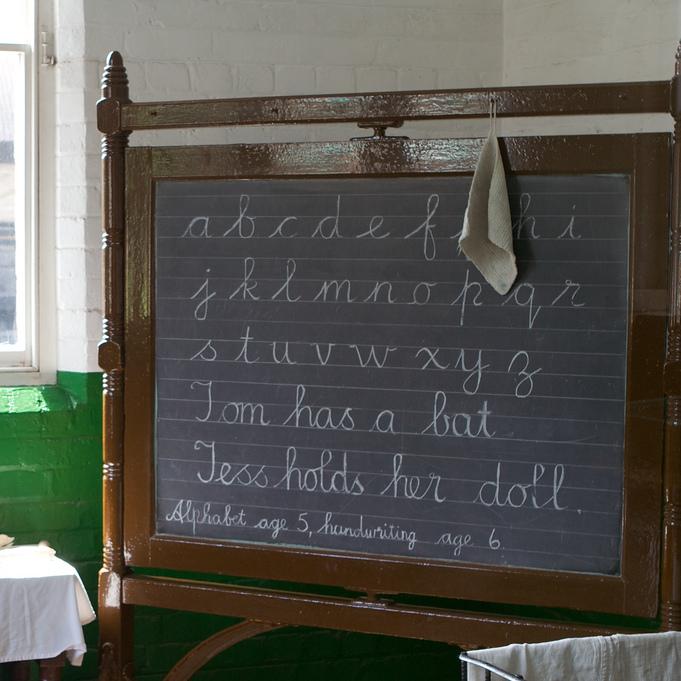 a b c d e f h i
j k l m n o p q r
s t u v w x y z
Tom has a bat
Tess holds her doll.
Alphabet age 5, handwriting age 6.